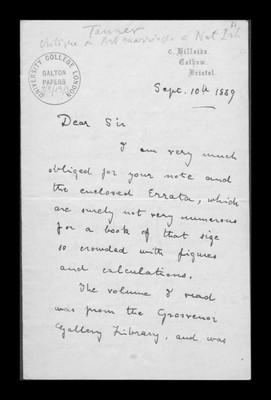 Tanner
UNIVERSITY COLLEGE LONDON
GALTON
PAPERS
C. Hillside,
Cotham,
Bristol.
Sept. 10th 1889
Dear Sir
I am very much
obliged for your note and
the enclosed Errata, which
are surely not very numerous
for a book of that size
so crowded with figures
and calculations.
The volume I read
was from the Grosvenor
Gallery Library, and was